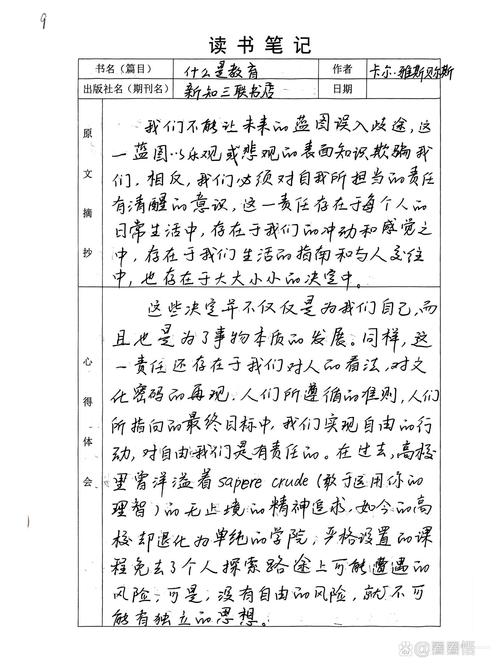 9
读书笔记
书名（篇目） 什么是教育 作者 卡尔·雅斯贝尔斯
出版社名（期刊名） 新知三联书店 日期
原文摘抄
我们不能让未来的蓝图误入歧途，这
一蓝图以乐观或悲观的表面知识欺骗我
们，相反，我们必须对自我所担当的责任
有清醒的意识，这一责任存在于每个人的
日常生活中，存在于我们的冲动和感觉之
中，存在于我们生活的指南和与人交往
中，也存在于大大小小的决定中。
心得体会
这些决定并不仅仅是为我们自己，而
且也是为了事物本质的发展。同样，这
一责任还存在于我们对人的看法，对文
化密码的再现，人们所遵循的准则，人们
所指向的最终目标中，我们实现自由的行
动，对自由我们是有责任的。在过去，高校
里曾洋溢着sapere crude（敢于运用你的
理智）的无止境的精神追求，如今的高
校却退化为单纯的学院，严格设置的课
程免去了个人探索路途上可能遭遇的
风险，可是，没有自由的风险，就不可
能有独立的思想。